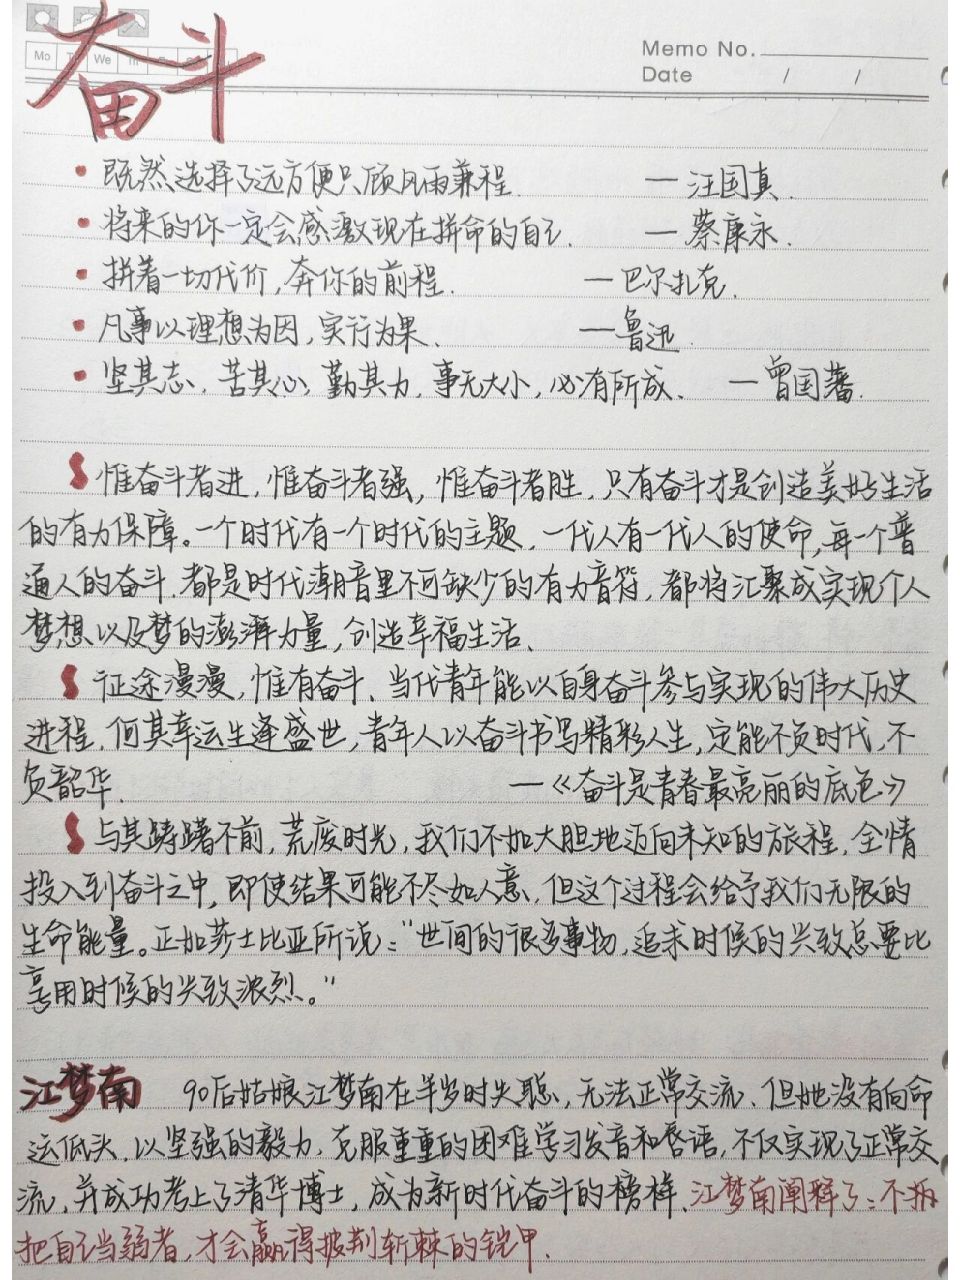 Mo T We Th
Memo No.
Date / /
奋斗
既然选择了远方便只顾风雨兼程. — 汪国真.
将来的你一定会感激现在拼命的自己. — 蔡康永.
拼着一切代价,奔你的前程. — 巴尔扎克.
凡事以理想为因,实行为果. — 鲁迅.
坚其志,苦其心,勤其力,事无大小,必有所成. — 曾国藩.
惟奋斗者进,惟奋斗者强,惟奋斗者胜,只有奋斗才是创造美好生活
的有力保障。一个时代有一个时代的主题,一代人有一代人的使命,每一个普
通人的奋斗.都是时代潮音里不可缺少的有力音符,都将汇聚成实现个人
梦想以及梦的澎湃力量,创造幸福生活.
征途漫漫,惟有奋斗.当代青年能以自身奋斗参与实现的伟大历史
进程,何其幸运生逢盛世,青年人以奋斗书写精彩人生,定能不负时代,不
负韶华. —《奋斗是青春最亮丽的底色》
与其踌躇不前,荒废时光,我们不如大胆地迈向未知的旅程,全情
投入到奋斗之中,即使结果可能不尽如人意,但这个过程会给予我们无限的
生命能量。正如莎士比亚所说:"世间的很多事物,追求时候的兴致总要比
享用时候的兴致浓烈。"
江梦南 90后姑娘江梦南在半岁时失聪,无法正常交流.但她没有向命
运低头,以坚强的毅力,克服重重的困难学习发音和唇语,不仅实现了正常交
流,并成功考上了清华博士,成为新时代奋斗的榜样.江梦南阐释了:不
把自己当弱者,才会赢得披荆斩棘的铠甲.